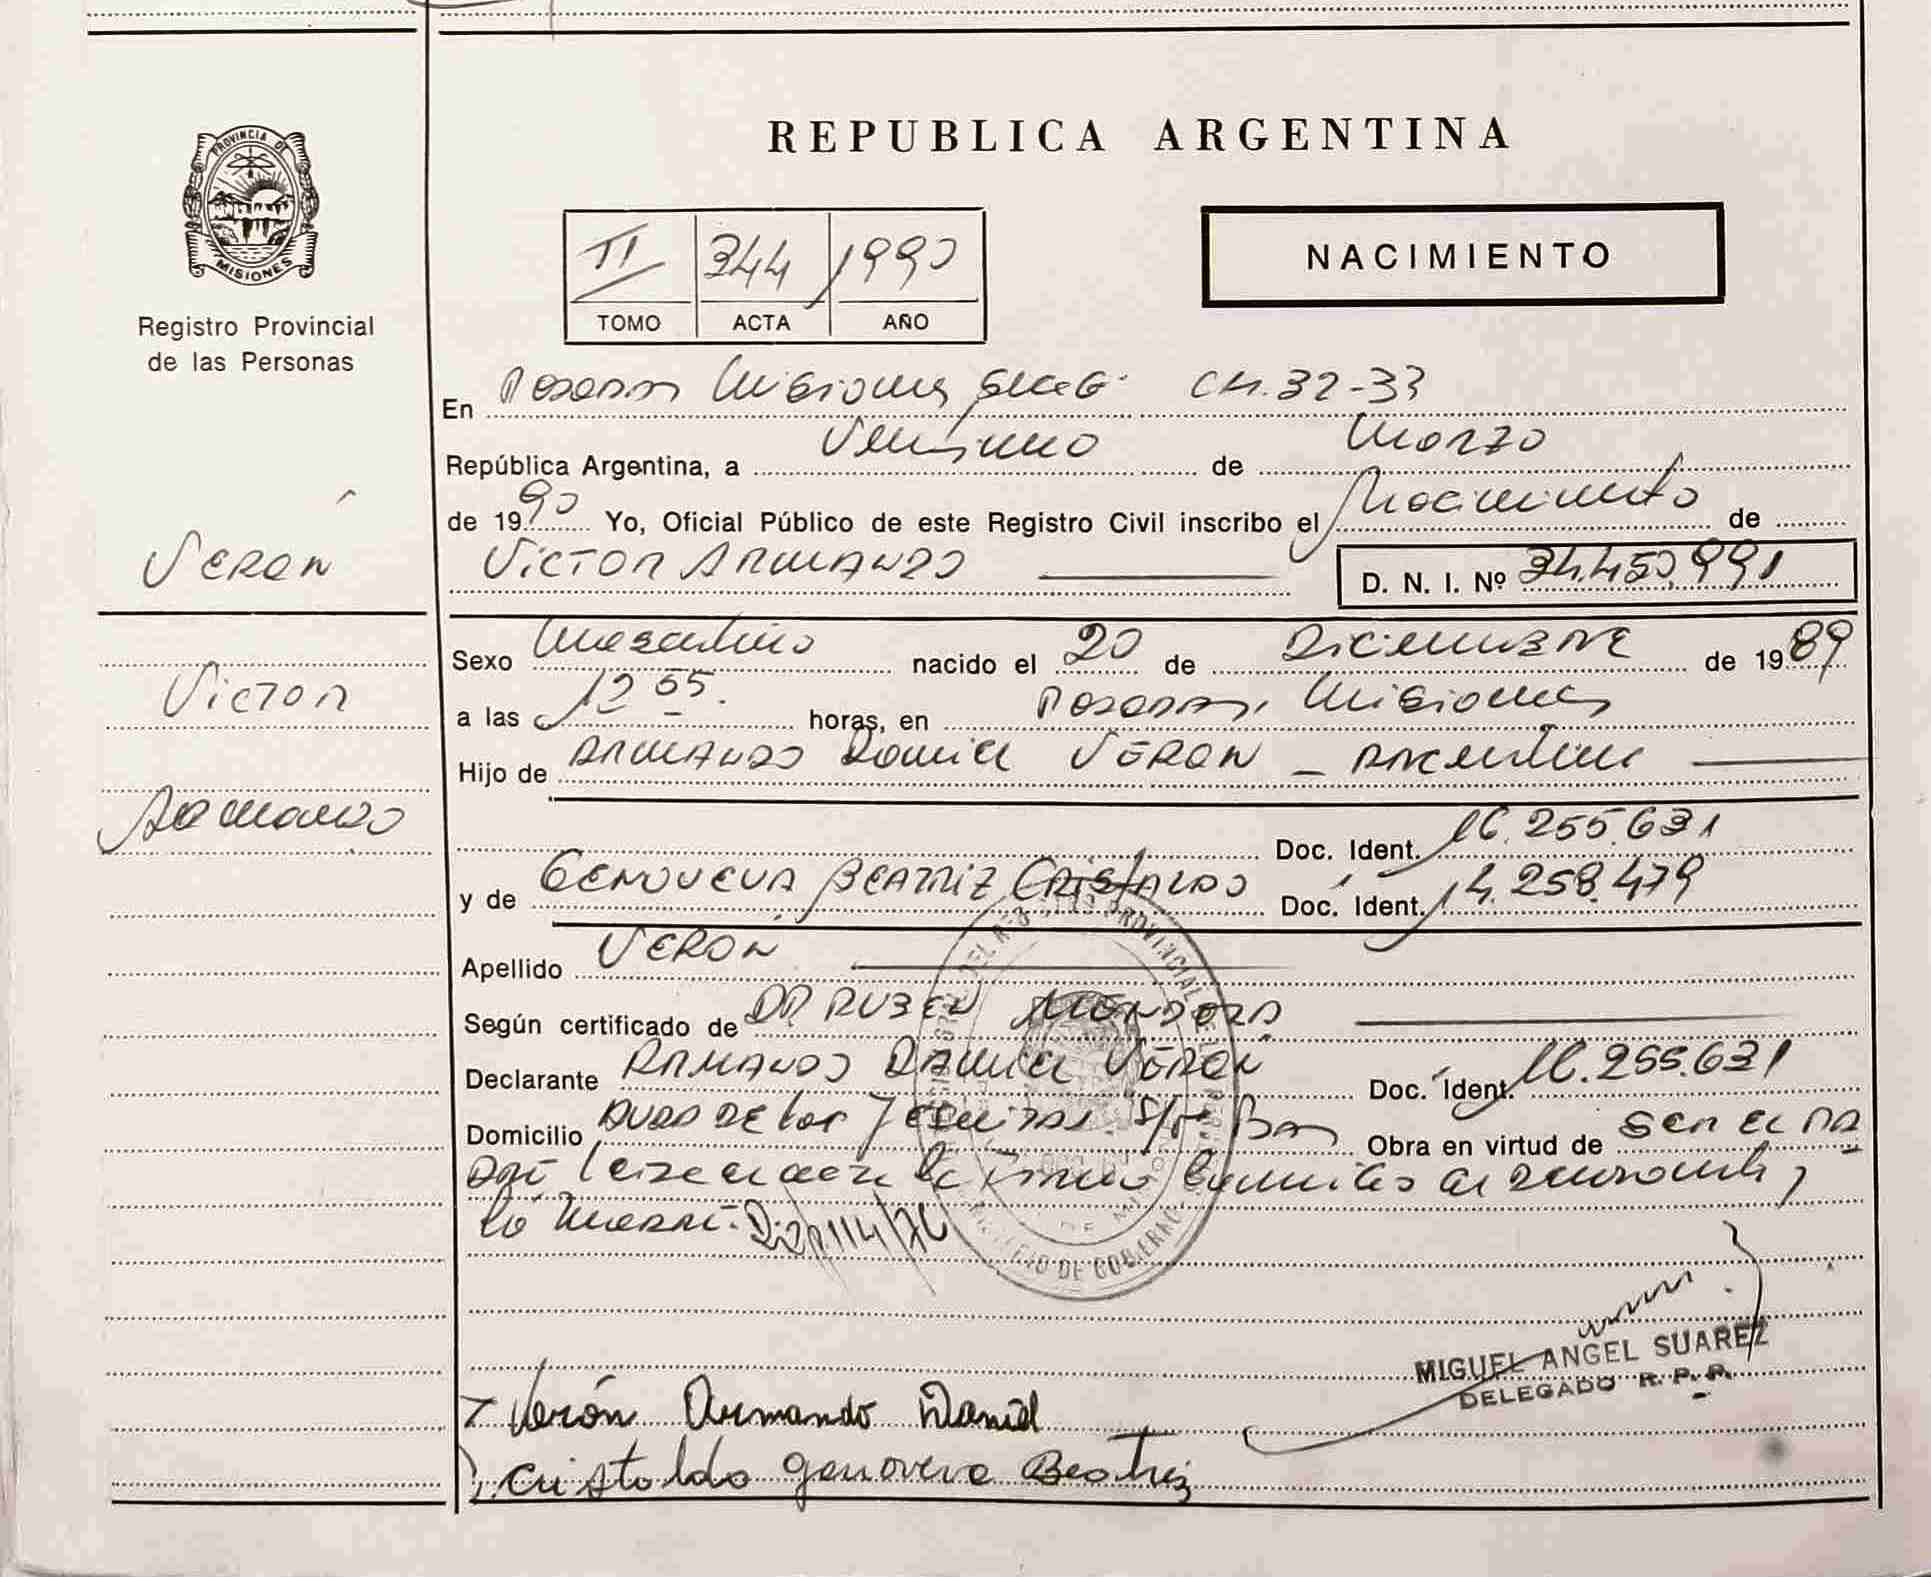 REPUBLICA ARGENTINA
PROVINCIA DE MISIONES
Registro Provincial
de las Personas
NACIMIENTO
II 344 1990
TOMO ACTA AÑO
En Posadas Misiones CH. 32-33
República Argentina, a Veintiuno de Marzo
de 1990 Yo, Oficial Público de este Registro Civil inscribo el Nacimiento de
VICTOR ARMANDO D. N. I. Nº 34.450.991
VERON
Victor
Armando
Sexo Masculino nacido el 20 de Diciembre de 1989
a las 12 55. horas, en Posadas, Misiones
Hijo de ARMANDO Daniel VERON - Argentino
Doc. Ident. 16.255.631
y de GENOVEVA BEATRIZ CRISTALDO Doc. Ident. 14.258.479
Apellido VERON
Según certificado de DR RUBEN MENDOZA
Declarante ARMANDO DANIEL VERON Doc. Ident. 16.255.631
Domicilio de los Jesuitas Obra en virtud de ser el pa
la Madre. Disp. 114/76
MIGUEL ANGEL SUAREZ
DELEGADO R. P. P.
Verón Armando Daniel
Cristaldo Genoveva Beatriz